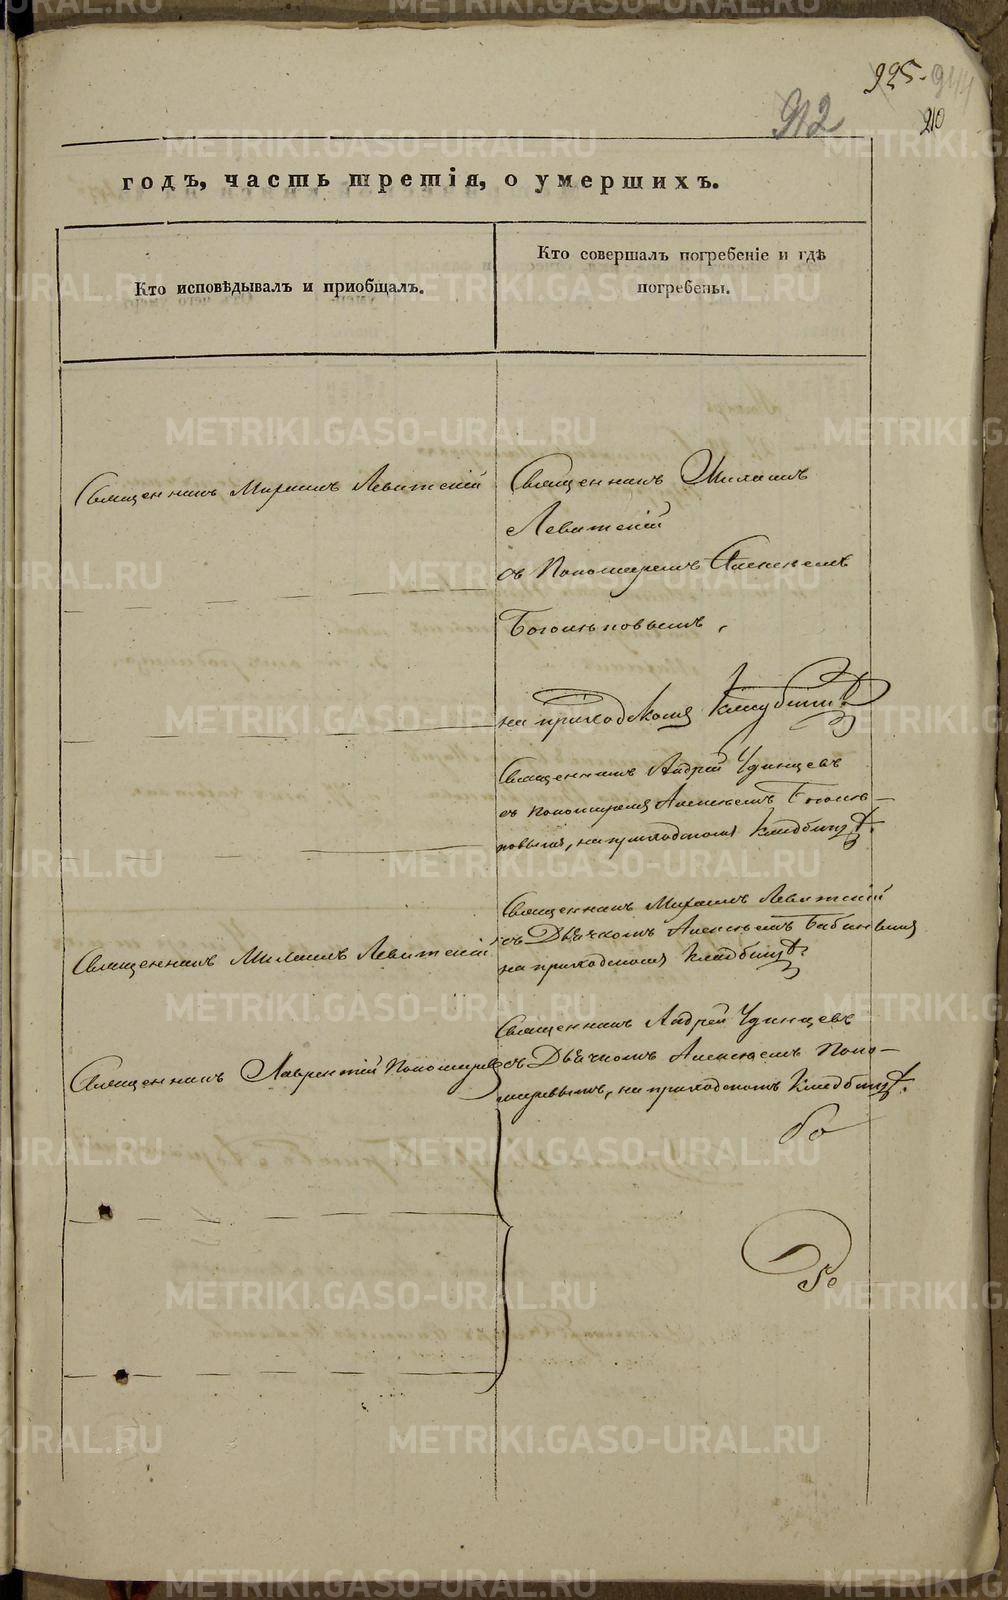 925. 944
912
210
годъ, часть третія, о умершихъ.
Кто исповѣдывалъ и пріобщалъ.
Кто совершалъ погребеніе и гдѣ
погребены.
Священникъ Михаилъ Левитскій
Священникъ Михаилъ
Левитскій
съ Пономаремъ Алексѣемъ
Боголѣповымъ,
на приходскомъ кладбищѣ.
Священникъ Андрей Удинцевъ
съ пономаремъ Алексѣемъ Боголѣ-
повымъ, на приходскомъ кладбищѣ.
Священникъ Михаилъ Левитскій
Священникъ Михаилъ Левитскій
съ Дьячкомъ Алексѣемъ
на приходскомъ кладбищѣ.
Священникъ Лаврентій Пономаревъ
Священникъ Андрей Удинцевъ
съ Дьячкомъ Алексѣемъ Поно-
маревымъ, на приходскомъ кладбищѣ.
METRIKI.GASO-URAL.RU